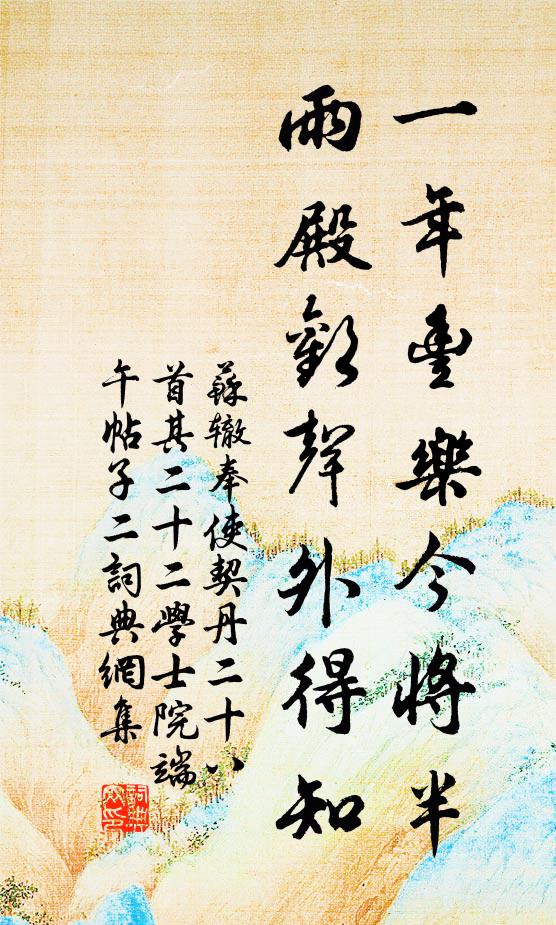 一年豐樂今將半
兩殿歡聲外得知
蘇轍奉使契丹二十八
首其二十二學士院端
午帖子二詞典網集